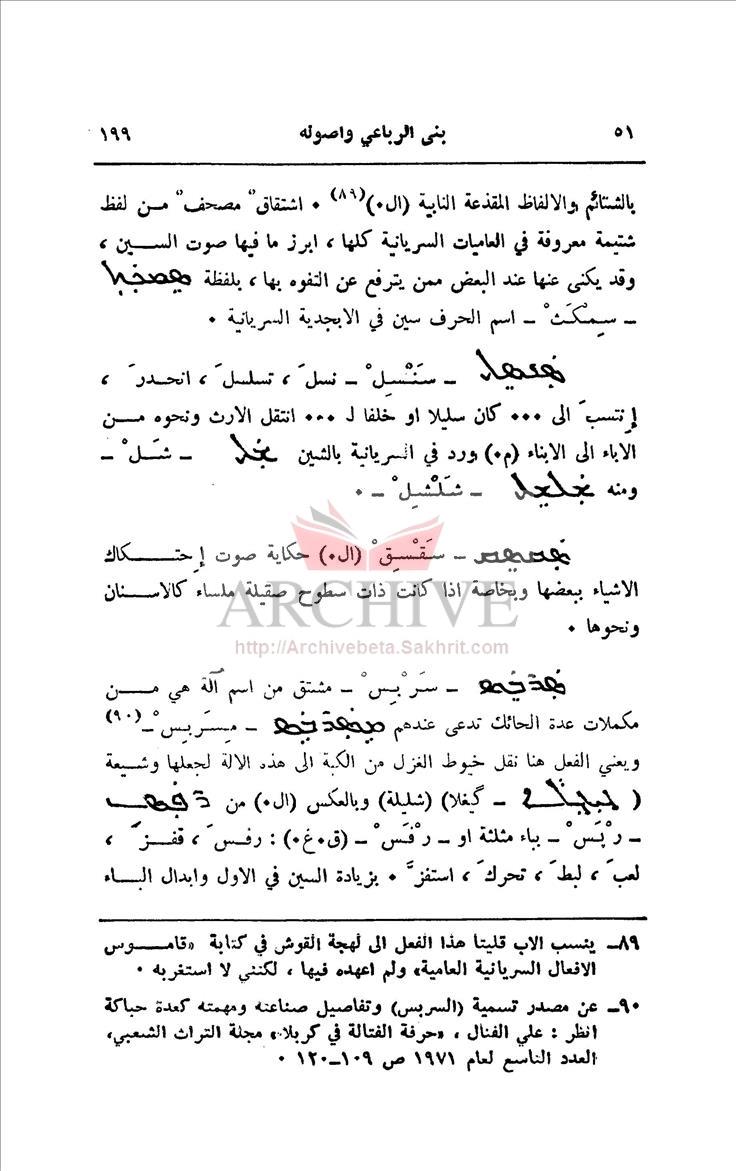 ٥١ بنى الرباعي واصوله ١٩٩
بالشتائم والالفاظ المقذعة النابية (ال٠)(٨٩) ٠ اشتقاق ً مصحف ً مـــن لفظ
شتيمة معروفة في العاميات السريانية كلها ، ابرز ما فيها صوت الســـين ،
وقد يكنى عنها عند البعض ممن يترفع عن التفوه بها ، بلفظة
ـ سِمْكَثْ ـ اسم الحرف سين في الابجدية السريانية ٠
ـ سَنْسِلْ ـ نسلَ ، تسلسلَ ، انحدرَ ،
إنتسبَ الى ٠٠٠ كان سليلا او خلفا لـ ٠٠٠ انتقل الارث ونحوه مـــن
الاباء الى الابناء (م٠) ورد في السريانية بالشين ـ شَـلْ ـ
ومنه ـ شَلْشِلْ ـ ٠
ـ سَقْسِقْ (ال٠) حكاية صوت إحتـــــكاك
الاشياء ببعضها وبخاصة اذا كانت ذات سطوح صقيلة ملساء كالاســنان
ونحوها ٠
ARCHIVE
http://Archivebeta.Sakhrit.com
ـ سَرْبِسْ ـ مشتق من اسم آلة هي مـــن
مكملات عدة الحائك تدعى عندهم ـ مِسَربِسْ ـ(٩٠)
ويعني الفعل هنا نقل خيوط الغزل من الكبة الى هذه الالة لجعلها وشيعة
( ـ گيغلا) (شليلة) وبالعكس (ال٠) من
ـ رْپَسْ ـ بباء مثلثة او ـ رْفَسْ ـ (ق٠غ٠) : رفسَ ، قفزَ ،
لعبَ ، لبطَ ، تحركَ ، استفزَّ ٠ بزيادة السين في الاول وابدال البـــاء
٨٩ـ ينسب الاب قليتا هذا الفعل الى لهجة القوش في كتابة «قامـــوس
الافعال السريانية العامية» ولم اعهده فيها ، لكنني لا استغربه ٠
٩٠ـ عن مصدر تسمية (السربس) وتفاصيل صناعته ومهمته كعدة حياكة
انظر : علي الفتال ، «حرفة الفتالة في كربلا» مجلة التراث الشعبي،
العدد التاسع لعام ١٩٧١ ص ١٠٩ـ١٢٠ ٠